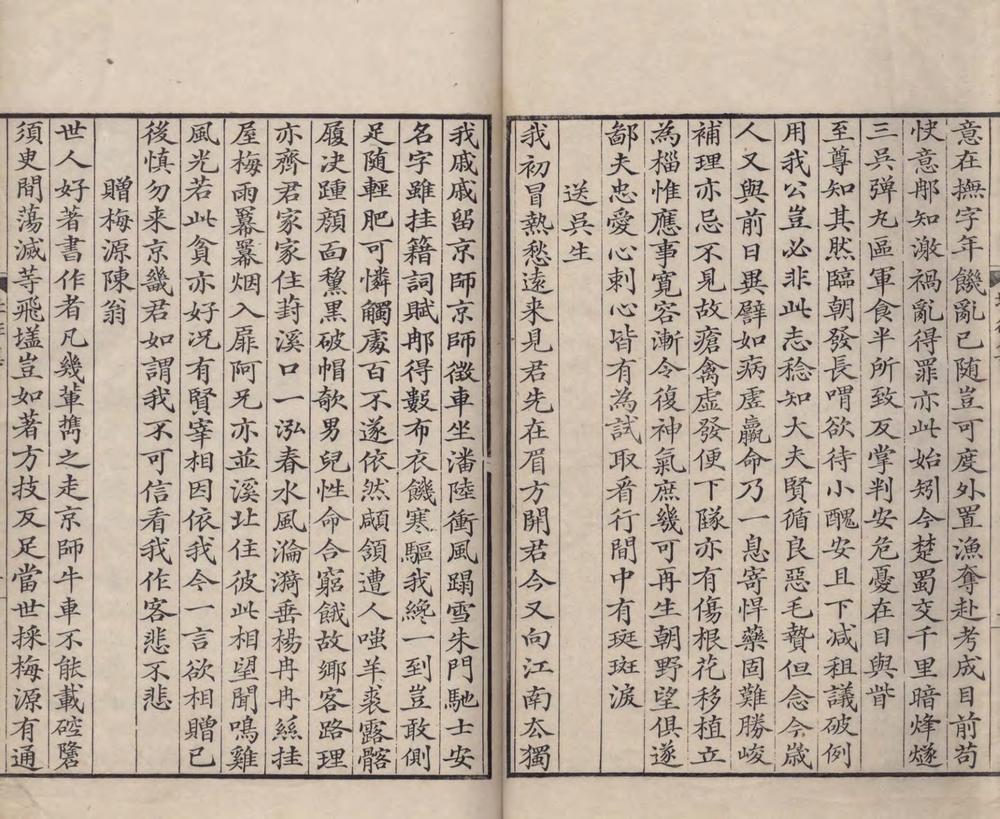 意在撫字年饑亂已随豈可度外置漁奪赴考成目前苟
快意𨚗知激禍亂得罪亦此始矧今楚蜀交千里暗烽燧
三吴彈丸區軍食半所致反掌判安危憂在目與眥
至尊知其然臨朝發長喟欲待小醜安且下减租議破例
用我公豈必非此志稔知大夫賢循良惡毛贄但念今歲
人又與前日異譬如病虚羸命乃一息寄悍藥固難勝峻
補理亦忌不見故瘡禽虚發便下隊亦有傷根花移植立
為椔惟應事寛容漸令復神氣庶幾可再生朝野望俱遂
鄙夫忠愛心刺心皆有為試取看行間中有斑斑淚
送吴生
我初冒熱愁遠來見君先在眉方開君今又向江南去獨
我戚戚留京師京師徵車坐潘陸衝風蹋雪朱門馳士安
名字雖挂籍詞賦𨚗得數布衣饑寒驅我纔一到豈敢側
足随輕肥可憐觸處百不遂依然頗頷遭人嗤羊裘露髂
履决踵顔面黧黑破帽欹男兒性命合窮餓故鄉客路理
亦齊君家家住葑溪口一泓春水風淪漪垂楊冉冉絲挂
屋梅雨羃羃烟入扉阿兄亦並溪北住彼此相望聞鳴雞
風光若此貧亦好况有賢宰相因依我今一言欲相贈已
後慎勿来京畿君如謂我不可信看我作客悲不悲
贈梅源陳翁
世人好著書作者凡幾輩攜之走京師牛車不能載硿礱
須臾間蕩滅等飛壒豈如著方技反足當世採梅源有通